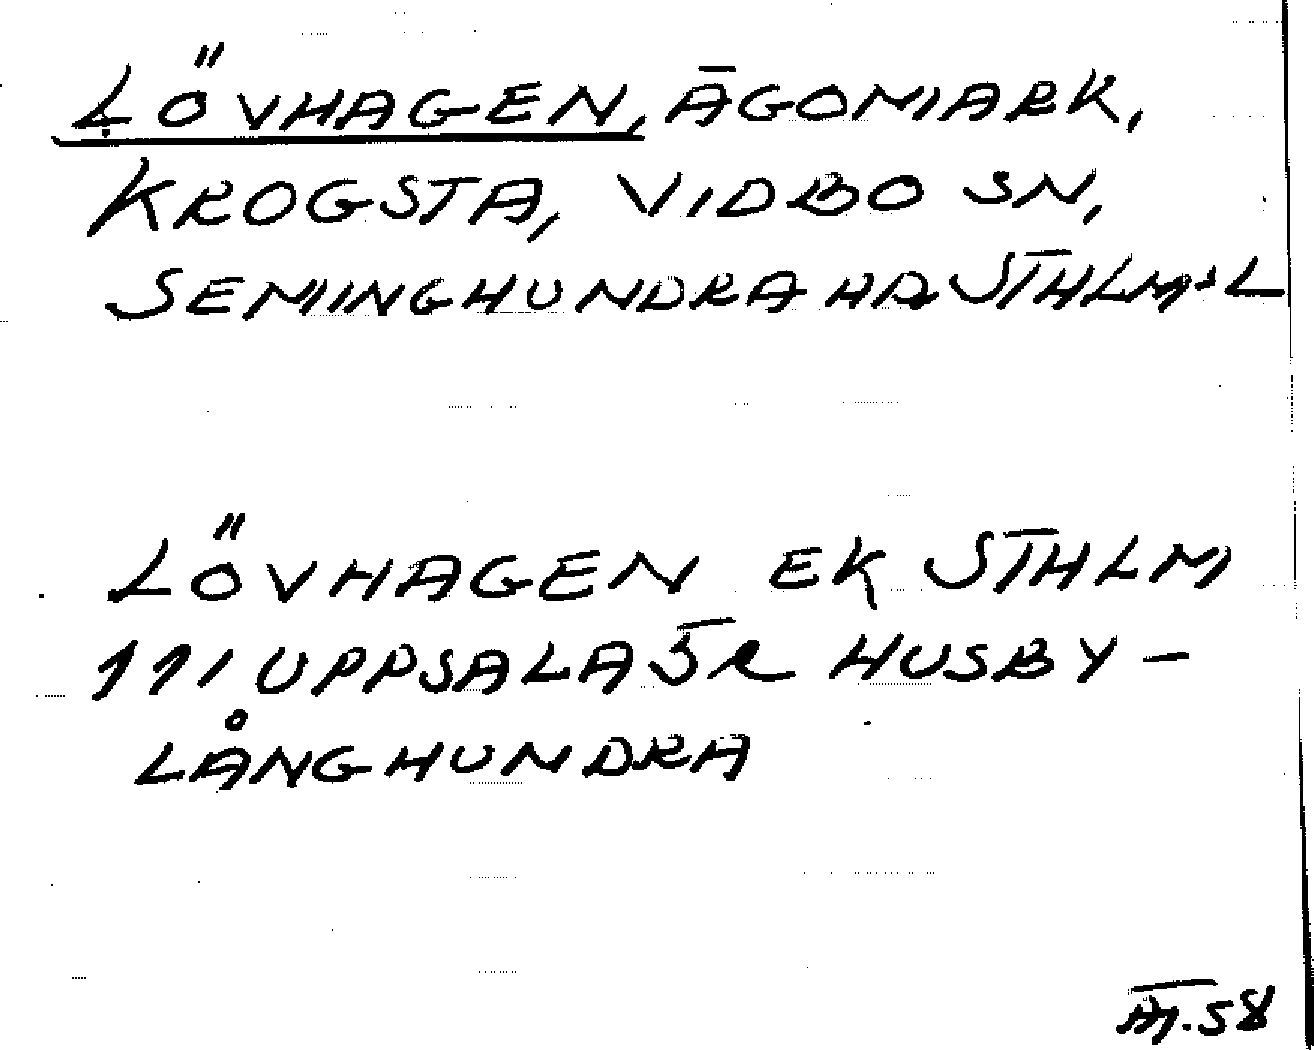 LÖVHAGEN, ÄGOMARK,
KROGSTA, VIDBO SN,
SEMINGHUNDRA HD STHLMS L
LÖVHAGEN EK STHLM
111 UPPSALA 5 R HUSBY-
LÅNGHUNDRA
58